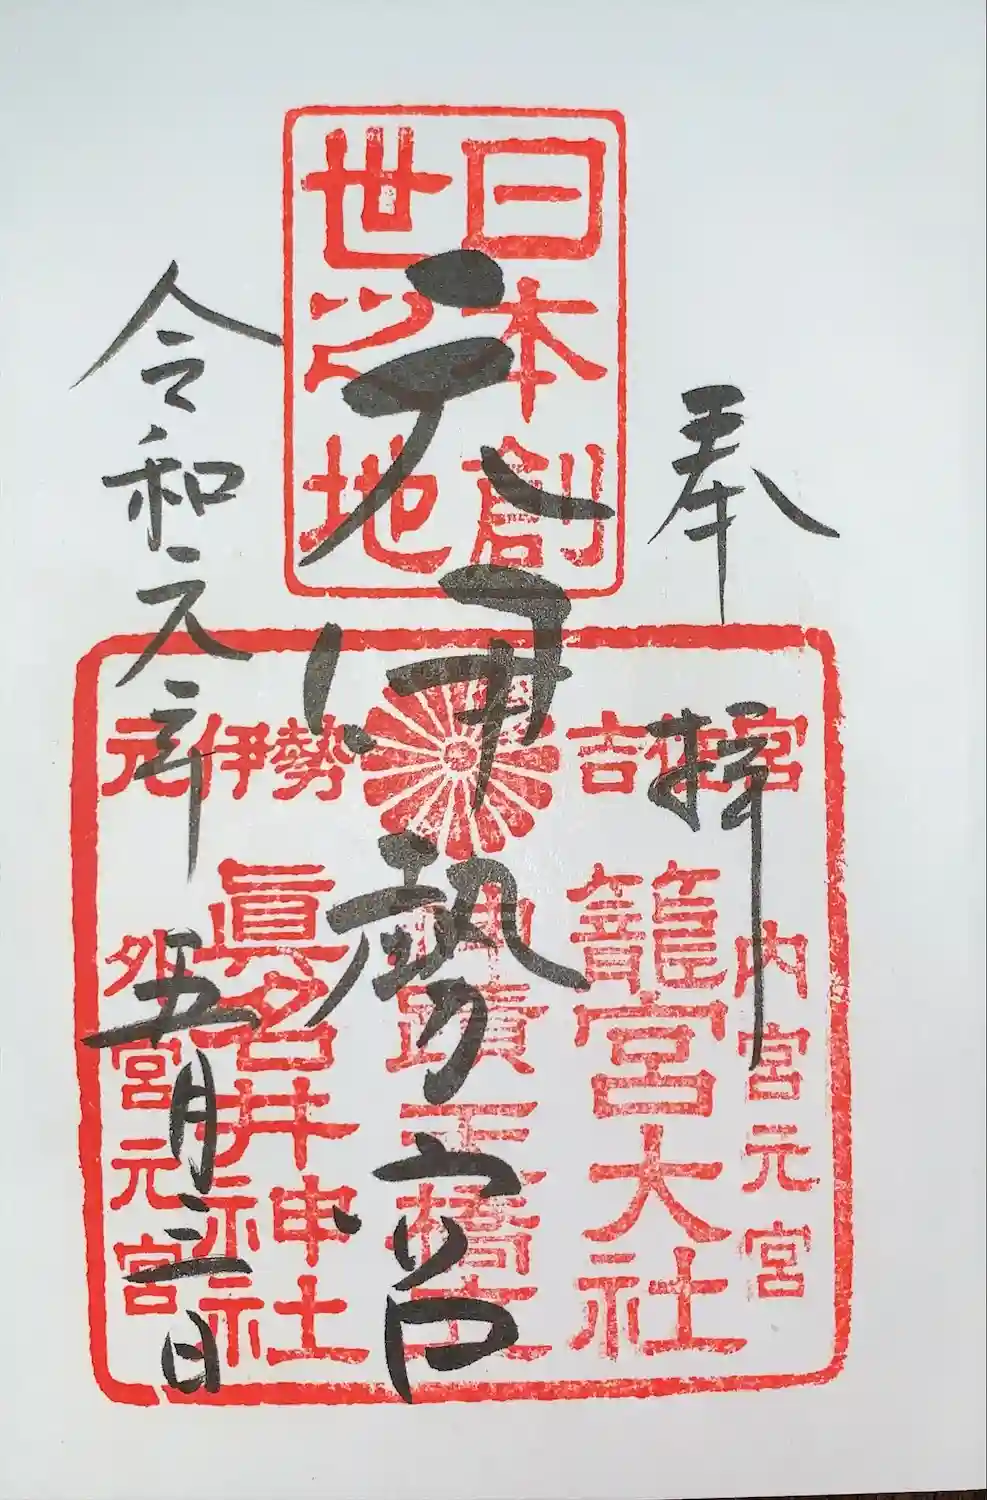 奉拝
元伊勢宮
令和元年
五月二日
日本創
世之地
元伊勢
吉佐宮
内宮元宮
籠宮大社
眞名井神社
外宮元宮